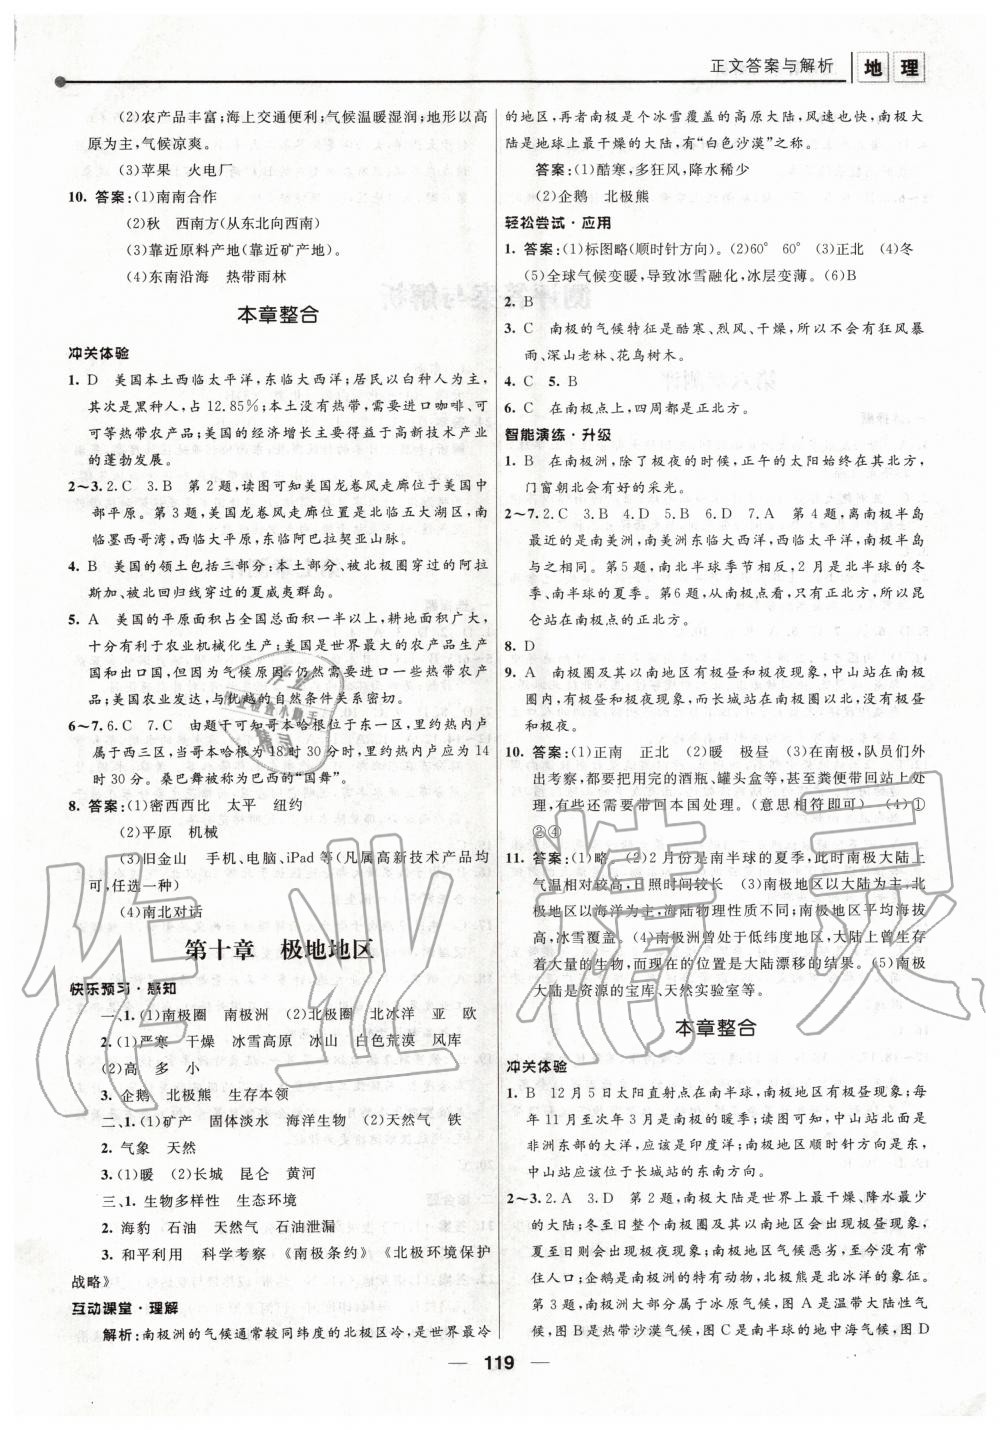 正文答案与解析 地理
(2)农产品丰富;海上交通便利;气候温暖湿润;地形以高
原为主,气候凉爽。
(3)苹果　火电厂
10. 答案:(1)南南合作
(2)秋　西南方(从东北向西南)
(3)靠近原料产地(靠近矿产地)。
(4)东南沿海　热带雨林
本章整合
冲关体验
1. D　美国本土西临太平洋,东临大西洋;居民以白种人为主,
其次是黑种人,占12.85%;本土没有热带,需要进口咖啡、可
可等热带农产品;美国的经济增长主要得益于高新技术产业
的蓬勃发展。
2～3. 2. C　3. B　第2题,读图可知美国龙卷风走廊位于美国中
部平原。第3题,美国龙卷风走廊位置是北临五大湖区,南
临墨西哥湾,西临大平原,东临阿巴拉契亚山脉。
4. B　美国的领土包括三部分:本土部分、被北极圈穿过的阿拉
斯加、被北回归线穿过的夏威夷群岛。
5. A　美国的平原面积占全国总面积一半以上,耕地面积广大,
十分有利于农业机械化生产;美国是世界最大的农产品生产
国和出口国,但因为气候原因,仍然需要进口一些热带农产
品;美国农业发达,与优越的自然条件关系密切。
6～7. 6. C　7. C　由题干可知哥本哈根位于东一区,里约热内卢
属于西三区,当哥本哈根为18时30分时,里约热内卢应为14
时30分。桑巴舞被称为巴西的“国舞”。
8. 答案:(1)密西西比　太平　纽约
(2)平原　机械
(3)旧金山　手机、电脑、iPad等(凡属高新技术产品均
可,任选一种)
(4)南北对话
第十章　极地地区
快乐预习·感知
一、1. (1)南极圈　南极洲　(2)北极圈　北冰洋　亚　欧
2. (1)严寒　干燥　冰雪高原　冰山　白色荒漠　风库
(2)高　多　小
3. 企鹅　北极熊　生存本领
二、1. (1)矿产　固体淡水　海洋生物　(2)天然气　铁
2. 气象　天然
3. (1)暖　(2)长城　昆仑　黄河
三、1. 生物多样性　生态环境
2. 海豹　石油　天然气　石油泄漏
3. 和平利用　科学考察　《南极条约》　《北极环境保护
战略》
互动课堂·理解
解析:南极洲的气候通常较同纬度的北极区冷,是世界最冷
的地区,再者南极是一个冰雪覆盖的高原大陆,风速也快,南极大
陆是地球上最干燥的大陆,有“白色沙漠”之称。
答案:(1)酷寒,多狂风,降水稀少
(2)企鹅　北极熊
轻松尝试·应用
1. 答案:(1)标图略(顺时针方向)。(2)60°　60°　(3)正北　(4)冬
(5)全球气候变暖,导致冰雪融化,冰层变薄。(6)B
2. B
3. C　南极的气候特征是酷寒、烈风、干燥,所以不会有狂风暴
雨、深山老林、花鸟树木。
4. C　5. B
6. C　在南极点上,四周都是正北方。
智能演练·升级
1. B　在南极洲,除了极夜的时候,正午的太阳始终在其北方,
门窗朝北会有好的采光。
2～7. 2. C　3. B　4. D　5. B　6. D　7. A　第4题,离南极半岛
最近的是南美洲,南美洲东临大西洋,西临太平洋,南极半岛
与之相同。第5题,南北半球季节相反,2月是北半球的冬
季、南半球的夏季。第6题,从南极点看,只有正北方,所以昆
仑站在南极点的正北方。
8. D
9. A　南极圈及其以南地区有极昼和极夜现象,中山站在南极
圈内,有极昼和极夜现象,而长城站在南极圈以北,没有极昼
和极夜。
10. 答案:(1)正南　正北　(2)暖　极昼　(3)在南极,队员们外
出考察,都要把用完的酒瓶、罐头盒等,甚至粪便带回站上处
理,有些还需要带回本国处理。(意思相符即可)　(4)①
②④
11. 答案:(1)略。(2)2月份是南半球的夏季,此时南极大陆上
气温相对较高,日照时间较长　(3)南极地区以大陆为主,北
极地区以海洋为主,海陆物理性质不同;南极大陆平均海拔
高,冰雪覆盖。(4)南极洲曾处于低纬度地区,大陆上曾生存
着大量的生物,而现在的位置是大陆漂移的结果。(5)南极
大陆是资源的宝库、天然实验室等。
本章整合
冲关体验
1. B　12月5日太阳直射点在南半球,南极地区有极昼现象;每
年11月至次年3月是南极的暖季;读图可知,中山站北面是
非洲东部的大洋,应该是印度洋;南极地区顺时针方向是东,
中山站应该位于长城站的东南方向。
2～3. 2. A　3. D　第2题,南极大陆是世界上最干燥、降水最少
的大陆;冬至日整个南极大陆的大部分会出现极昼现象,
夏至日则会出现极夜现象;南极地区气候恶劣,至今没有常
住人口;企鹅是南极洲的特有动物,北极熊是北冰洋的象征。
第3题,南极洲大部分属于冰原气候,图A是温带大陆性气
候,图B是热带沙漠气候,图C是南半球的地中海气候,图D
119
作业精灵